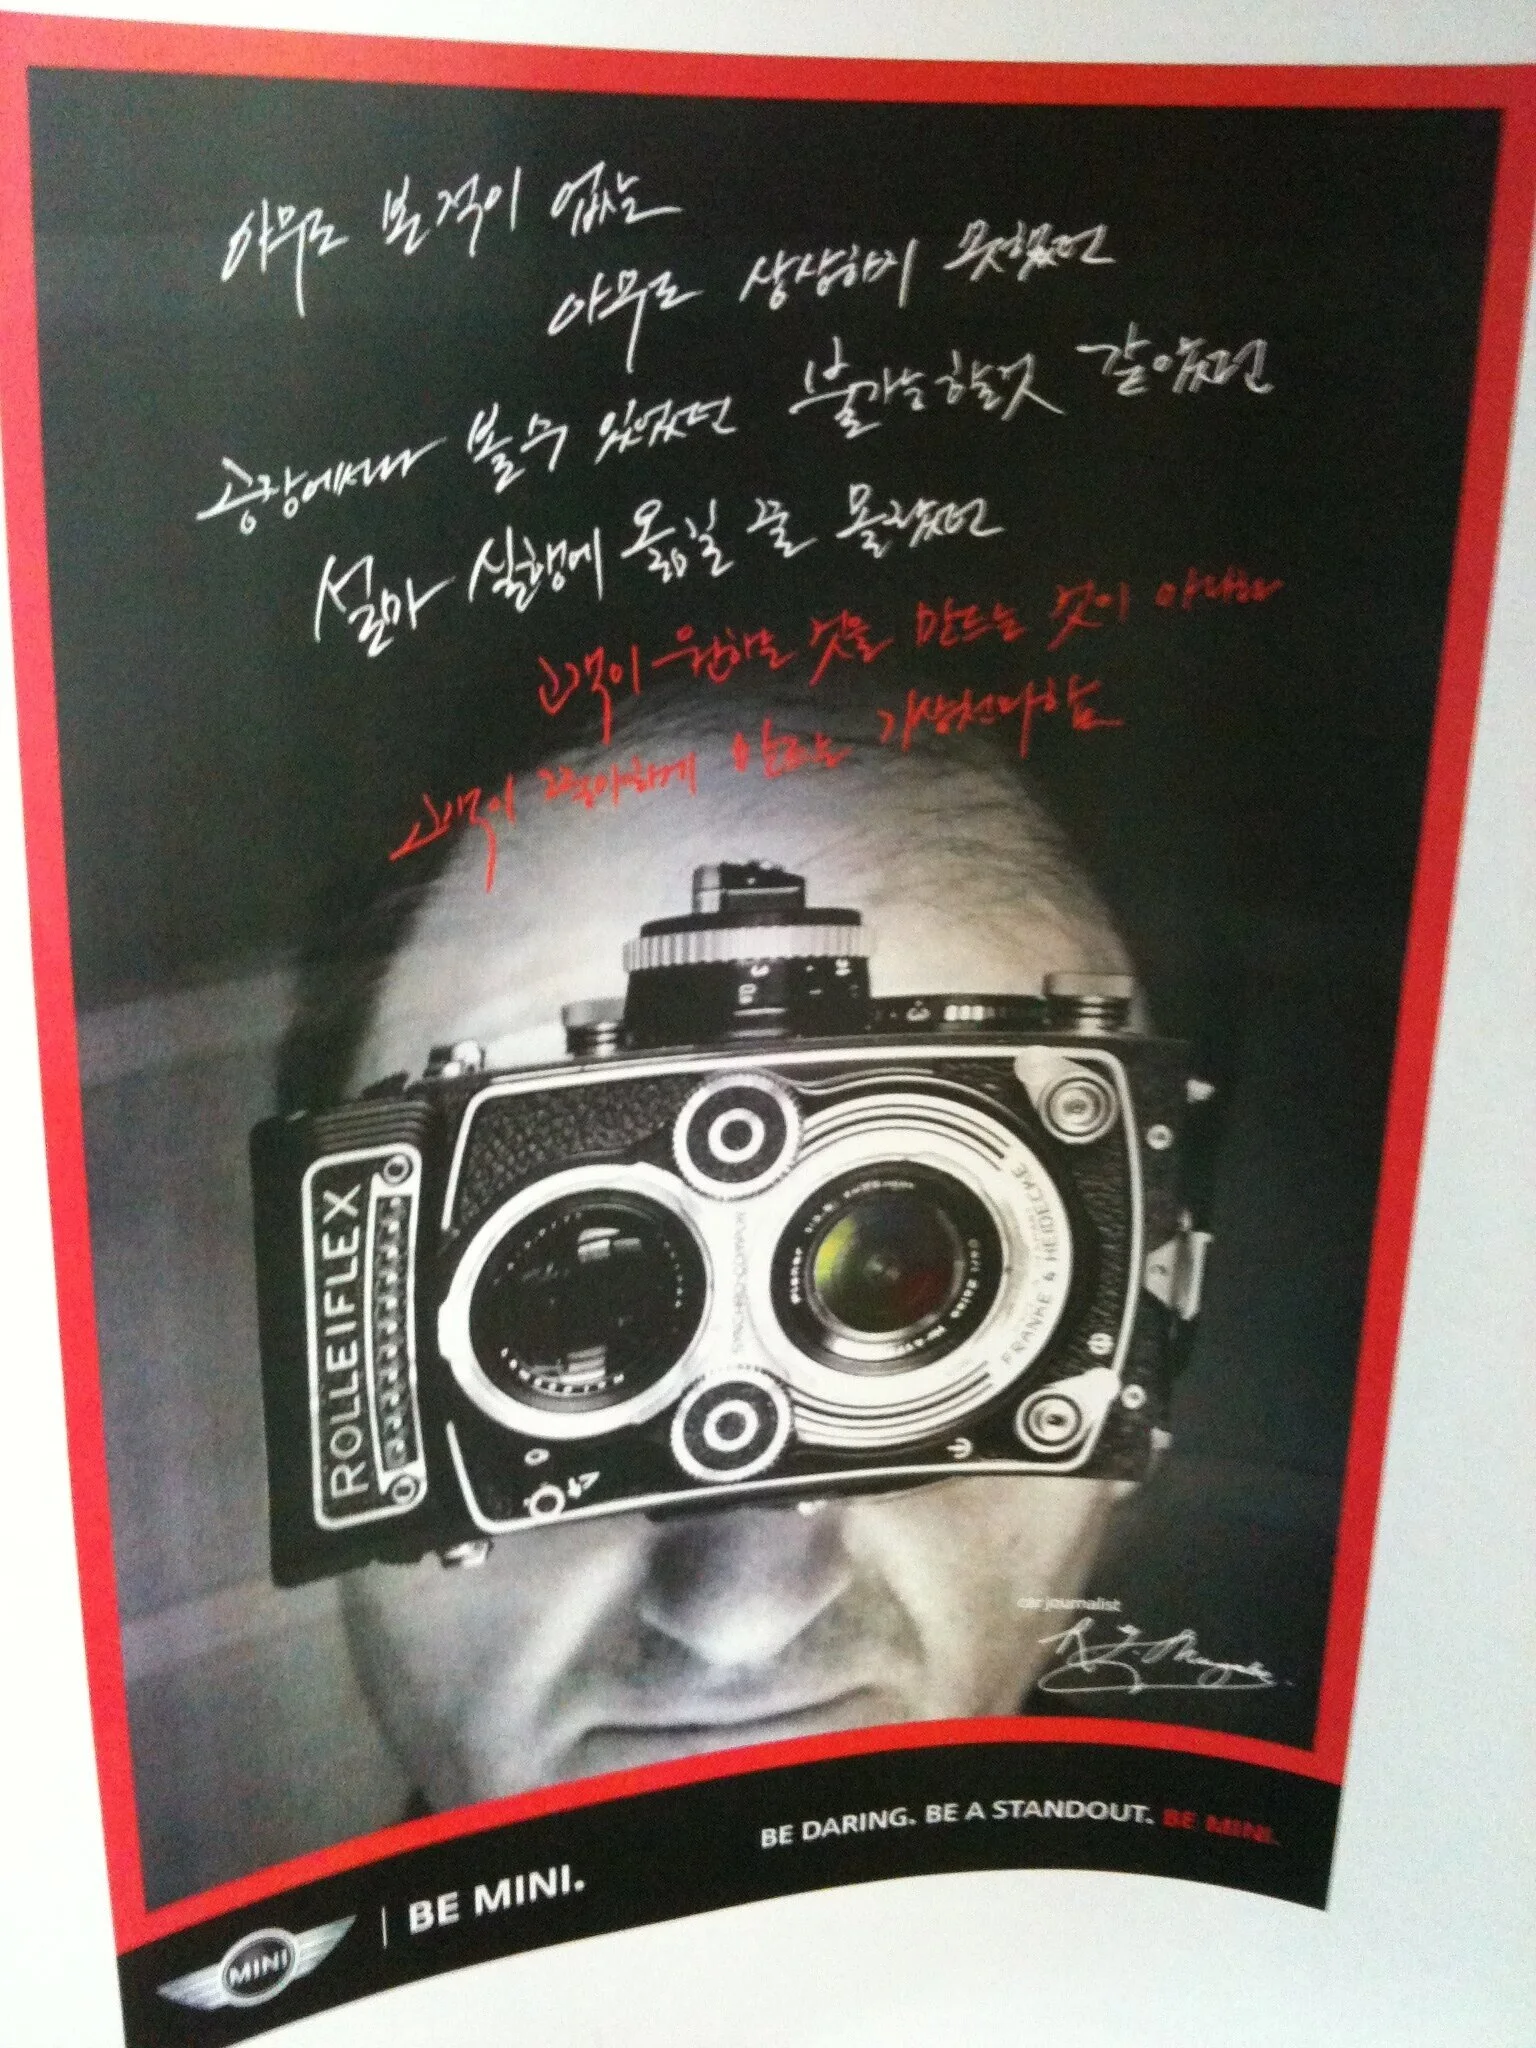 아무도 본적이 없는
아무도 상상하지 못했던
공장에서나 볼수 있었던 불가능할것 같았던
설마 실행에 옮길 줄 몰랐던
고객이 원하는 것을 만드는 것이 아니라
고객이 좋아하게 만드는 기상천외함
ROLLEIFLEX
FRANKE & HEIDECKE
Planar
Carl Zeiss
car journalist
BE DARING. BE A STANDOUT. BE MINI.
MINI | BE MINI.